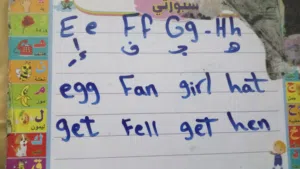 سبورتي
Ee Ff Gg - Hh
إ ف ج ه
egg Fan girl hat
get Fell get hen
ليمون